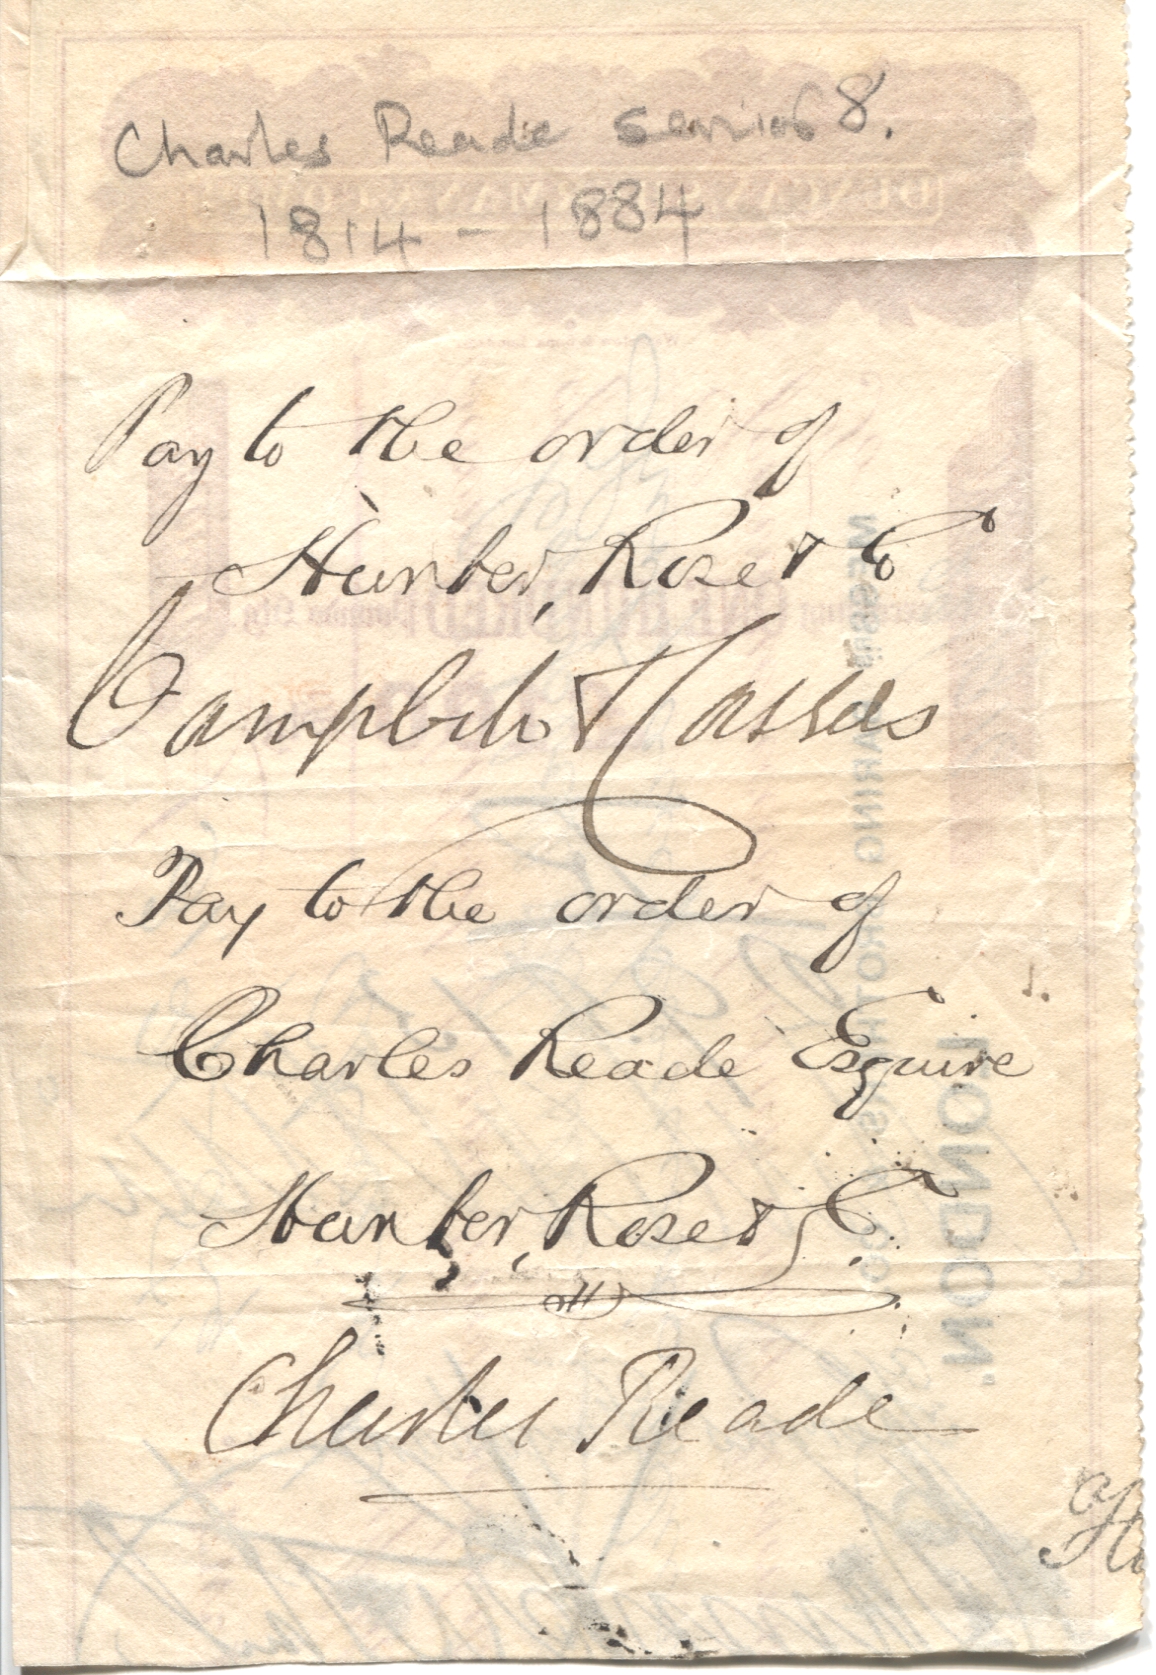 Charles Reade series 8.
1814 - 1884
Pay to the order of
Hunter, Rose & Co
Campbell & Cassels
Pay to the order of
Charles Reade Esquire
Hunter, Rose & Co.
Charles Reade
LONDON.